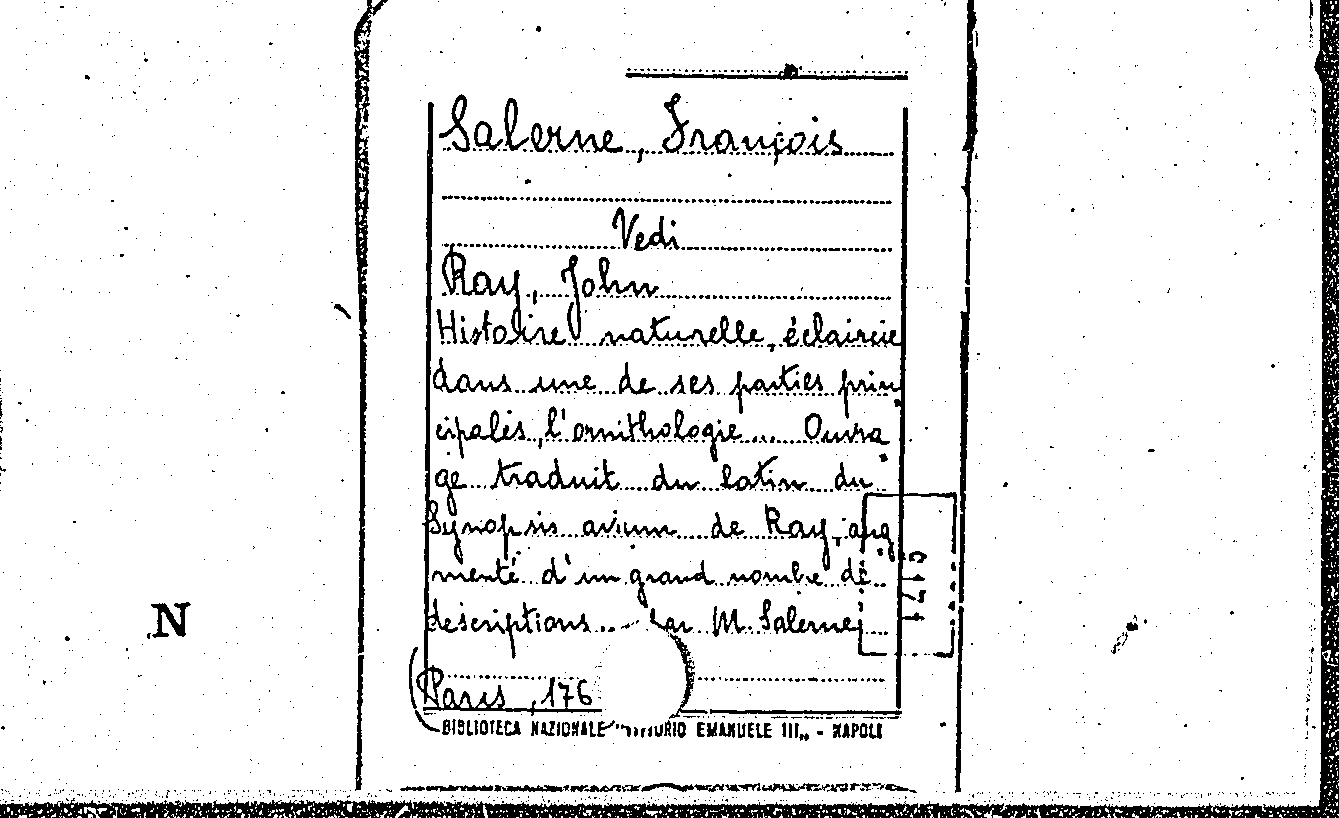 Salerne, François
Vedi
Ray, John
Histoire naturelle, éclaircie
dans une de ses parties prin
cipales, l'ornithologie... Ouvra
ge traduit du latin du
Synopsis avium de Ray, aug
menté d'un grand nombre de
descriptions... Par M. Salerne
Paris, 176
BIBLIOTECA NAZIONALE EMANUELE III„ - NAPOLI
N